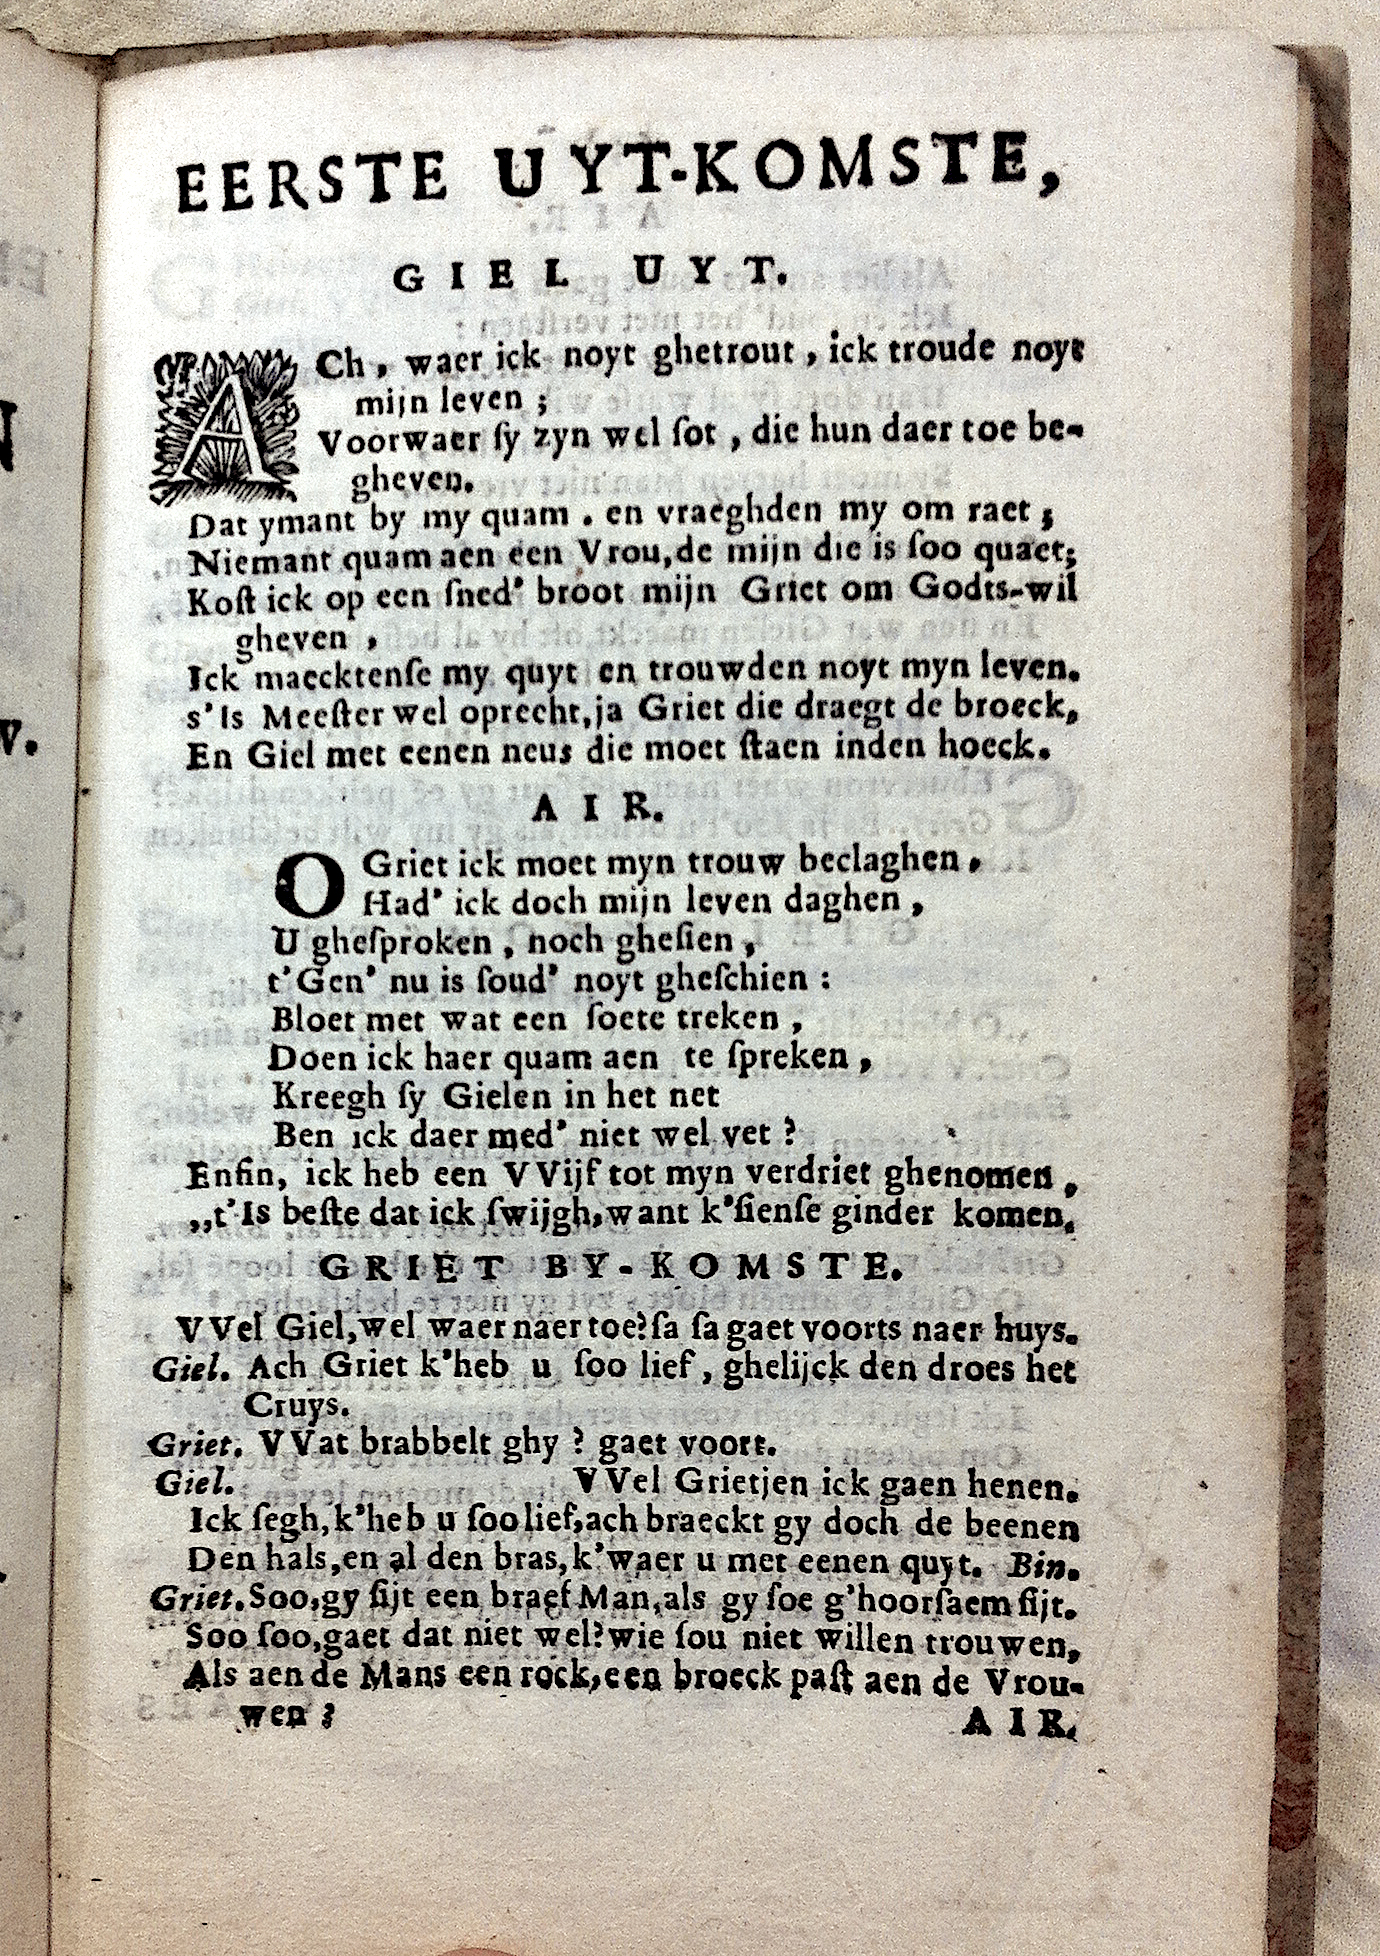 EERSTE UYT-KOMSTE,
GIEL UYT.
ACh, waer ick noyt ghetrout, ick troude noyt
mijn leven;
Voorwaer ſy zyn wel ſot, die hun daer toe be-
gheven.
Dat ymant by my quam. en vraeghden my om raet;
Niemant quam aen een Vrou, de mijn die is ſoo quaet;
Koſt ick op een ſned' broot mijn Griet om Godts-wil
gheven,
Ick maecktenſe my quyt en trouwden noyt myn leven.
s'Is Meeſter wel oprecht, ja Griet die draegt de broeck,
En Giel met eenen neus die moet ſtaen inden hoeck.
AIR.
O Griet ick moet myn trouw beclaghen,
Had' ick doch mijn leven daghen,
U gheſproken, noch gheſien,
t'Gen' nu is ſoud' noyt gheſchien:
Bloet met wat een ſoete treken,
Doen ick haer quam aen te ſpreken,
Kreegh ſy Gielen in het net
Ben ick daer med' niet wel vet?
Enfin, ick heb een VVijf tot myn verdriet ghenomen,
,,t'Is beſte dat ick ſwijgh, want k'ſienſe ginder komen.
GRIET BY-KOMSTE.
VVel Giel, wel waer naer toe? ſa ſa gaet voorts naer huys.
Giel. Ach Griet k'heb u ſoo lief, ghelijck den droes het
Cruys.
Griet. VVat brabbelt ghy? gaet voort.
Giel. VVel Grietjen ick gaen henen.
Ick ſegh, k'heb u ſoo lief, ach braeckt gy doch de beenen
Den hals, en al den bras, k'waer u met eenen quyt. Bin.
Griet. Soo, gy ſijt een braef Man, als gy ſoe g'hoorſaem ſijt.
Soo ſoo, gaet dat niet wel? wie ſou niet willen trouwen,
Als aen de Mans een rock, een broeck paſt aen de Vrou-
wen?
AIR.